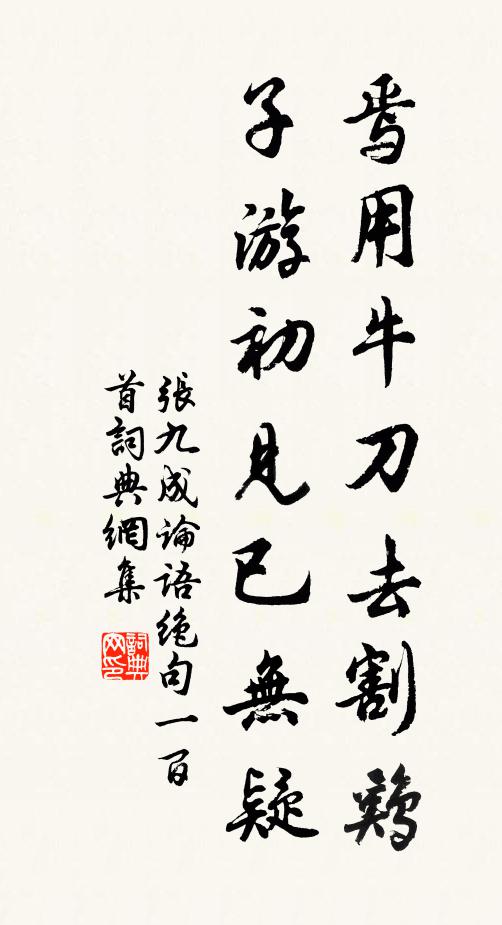 焉用牛刀去割鷄
子游初見已無疑
張九成論語絶句一百
首詞典網集
詞典網印